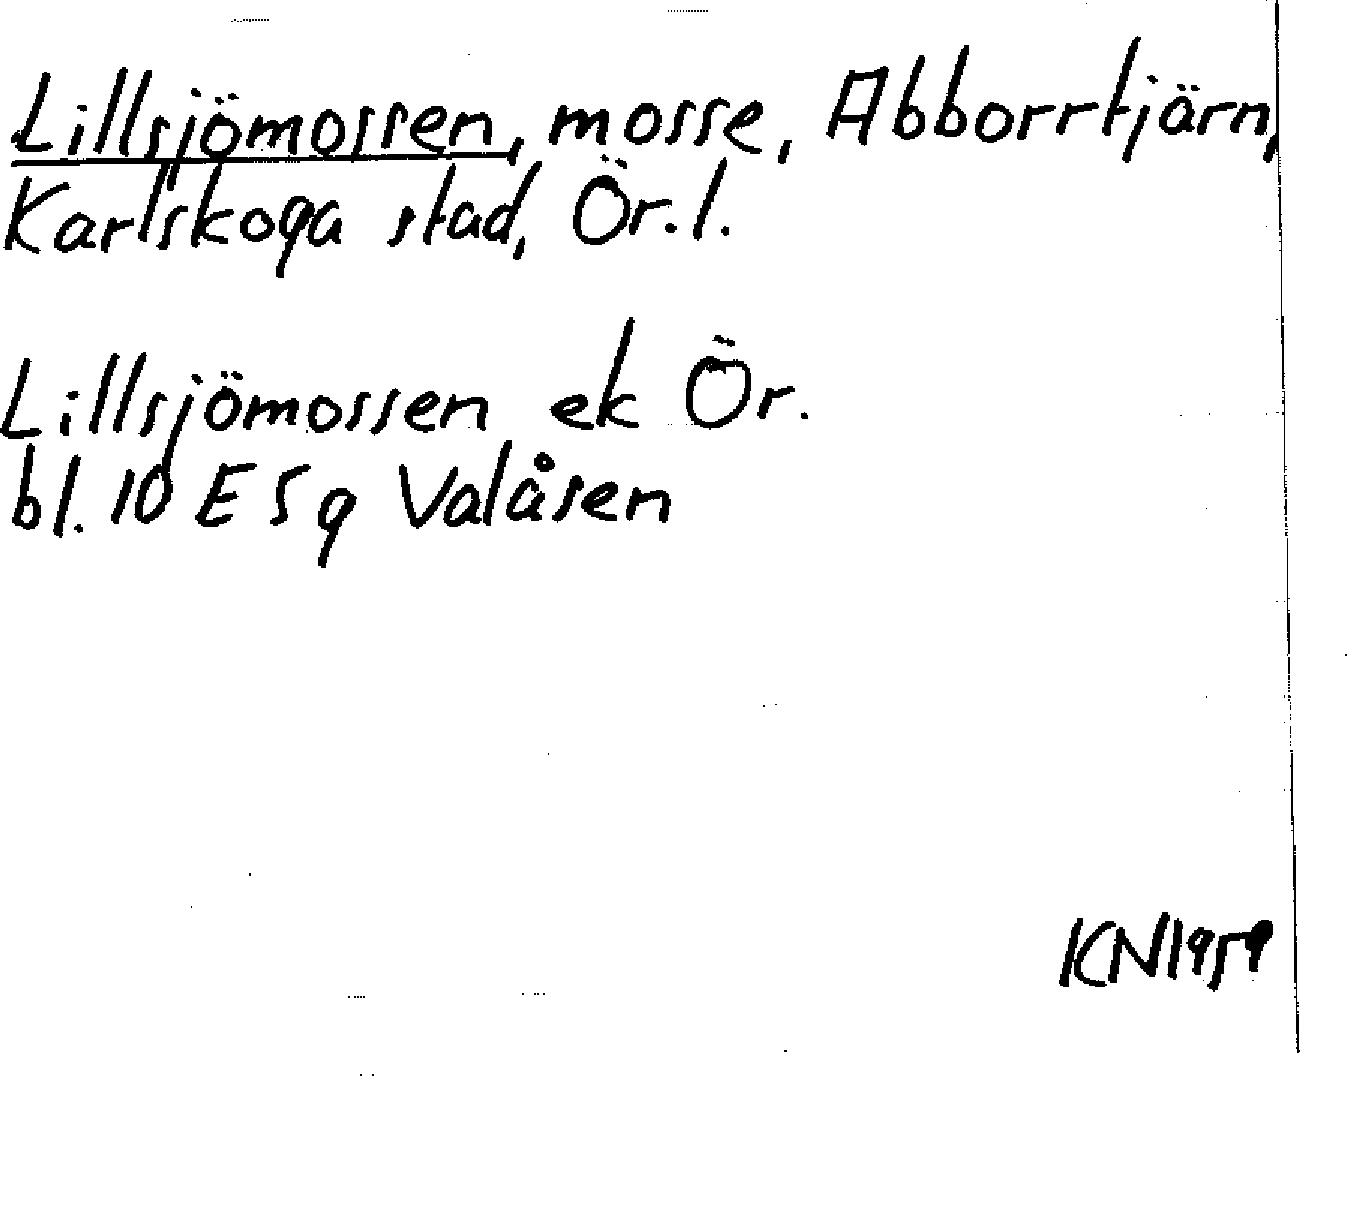 Lillsjömossen, mosse, Abborrtjärn,
Karlskoga stad, Ör. l.
Lillsjömossen ek Ör.
bl. 10 E 5 g Valåsen
KN 1959